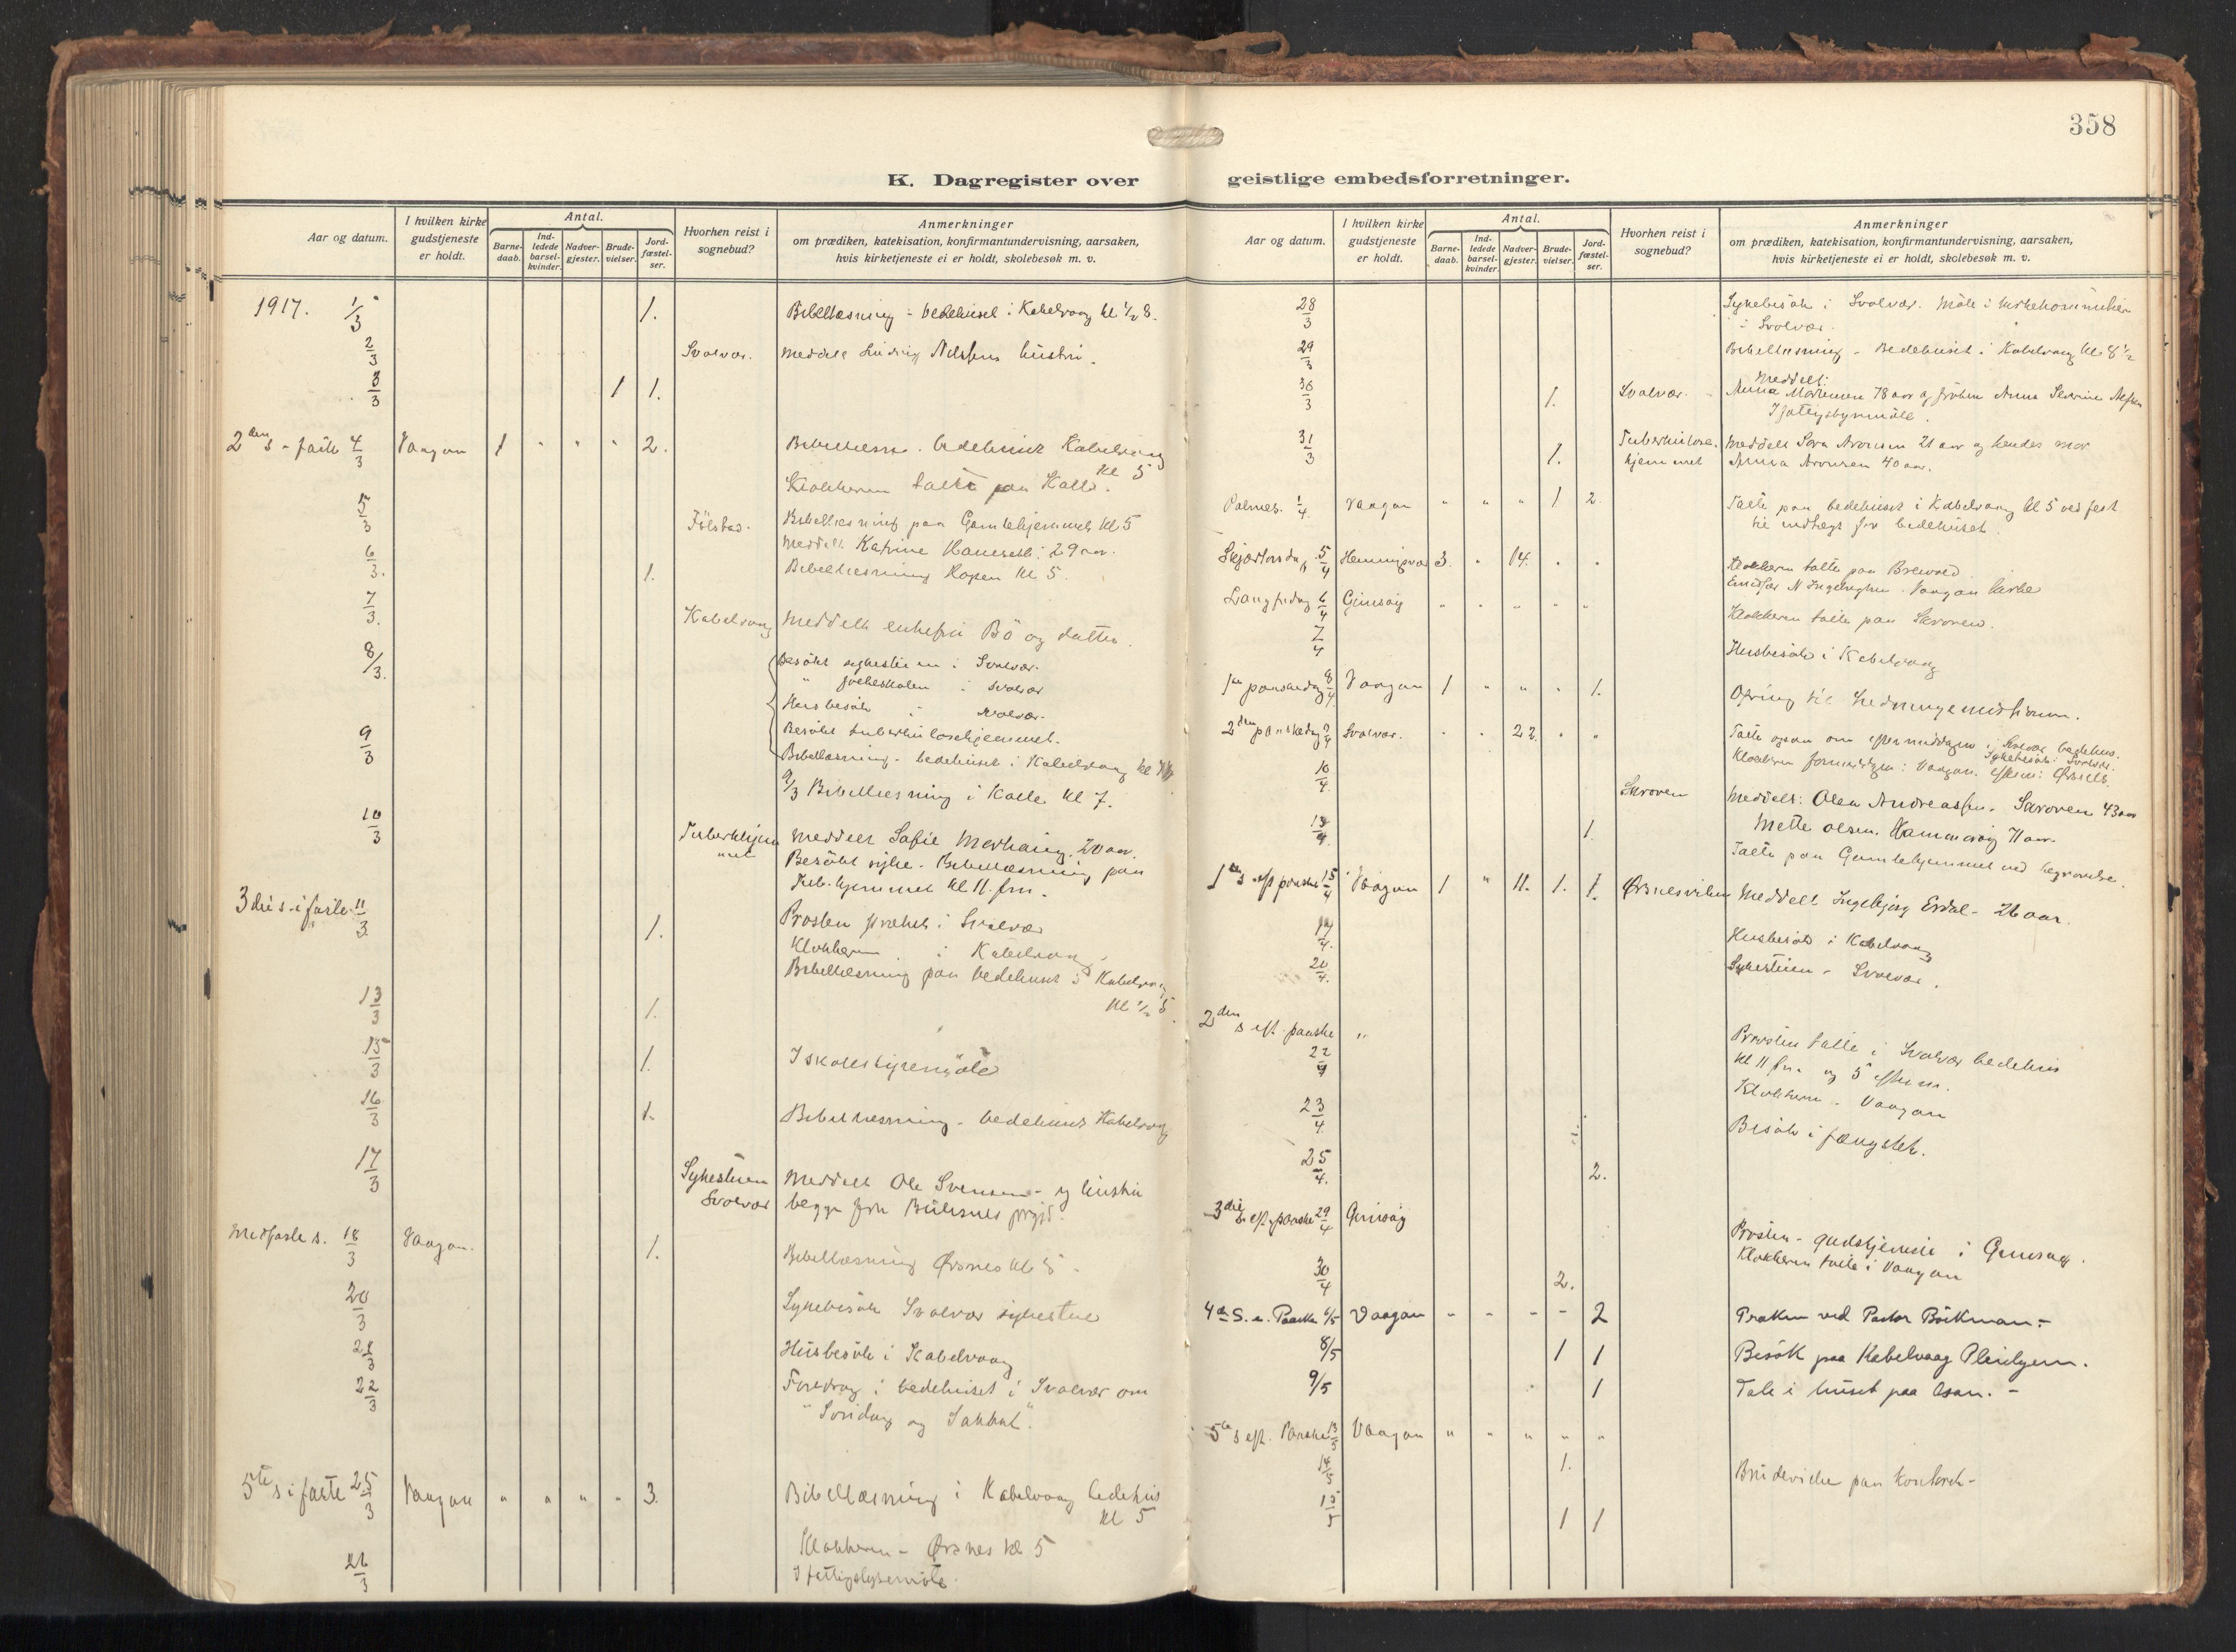 358
K. Dagregister over geistlige embedsforretninger.
Aar og datum.
I hvilken kirke gudstjeneste er holdt.
Antal.
Barne-daab.
Ind-ledede barsel-kvinder.
Nadver-gjester.
Brude-vielser.
Jord-fæstel-ser.
Hvorhen reist i sognebud?
Anmerkninger
om prædiken, katekisation, konfirmantundervisning, aarsaken,
hvis kirketjeneste ei er holdt, skolebesøk m. v.
1917. 1/3 1. Bibellæsning - bedehuset i Kabelvaag kl 1/2 8.
2/3 Svolvær. Meddelt Nilssens hustru.
3/3 1 1.
2den s. i faste 4/3 Vaagan 1 " " " 2. bedehuset Kabelvaag
kl 5
Klokkeren talte paa Kalle.
5/3 Bibellæsning paa Gamlehjemmet kl 5
Meddelt Katrine 29 aar.
6/3. 1. Bibellæsning Hopen kl 5.
7/3. Kabelvaag Meddelt enkefru Bö og datter.
8/3. Besökt sykestuen i Svolvær.
" folkeskolen i Svolvær
Husbesök i Svolvær.
Besökt tuberkulosehjemmet.
9/3 Bibellæsning - bedehuset i Kabelvaag kl
9/3 Bibellæsning i Kalle kl 7.
10/3 Tuberkhjemmet Meddelt Sofie 20 aar.
Besökt syke. Bibellæsning paa
Tub. hjemmet kl 11. fm.
3die s. i faste 11/3 1. Prosten præket i Svolvær
Klokkeren i Kabelvaag.
Bibellæsning paa bedehuset i Kabelvaag
kl 1/2 5.
13/3 1.
15/3 1. I skolestyremöte
16/3 1. Bibellæsning - bedehuset Kabelvaag
17/3 Sykestuen Svolvær Meddelt Ole Svensen - og hustru
begge fra prgjd.
Midfaste s. 18/3 Vaagan. 1. Bibellæsning Ørsnes kl 5 -
20/3 Sykebesök Svolvær sykestue
21/3 Husbesök i Kabelvaag
22/3 Foredrag i bedehuset i Svolvær om
"Söndag og Sabbat".
5te s. i faste 25/3 Vaagan " " " " 3. Bibellæsning i Kabelvaag bedehus
kl 5
Klokkeren - Ørsnes kl 5
26/3 I fattigstyremöte.
Aar og datum.
I hvilken kirke gudstjeneste er holdt.
Antal.
Barne-daab.
Ind-ledede barsel-kvinder.
Nadver-gjester.
Brude-vielser.
Jord-fæstel-ser.
Hvorhen reist i sognebud?
Anmerkninger
om prædiken, katekisation, konfirmantundervisning, aarsaken,
hvis kirketjeneste ei er holdt, skolebesøk m. v.
28/3 Sykebesök i Svolvær. Möte i
i Svolvær.
29/3 Bibellæsning - Bedehuset i Kabelvaag kl 8 1/2
30/3 1. Svolvær. Meddelt:
Anna Mortensen 78 aar og fröken Anna
I fattigstyremöte.
31/3 1. Tuberkulosehjemmet Meddelt Sara Aronsen 21 aar og hendes mor
Anna Aronsen 40 aar.
Palmes. 1/4 Vaagan " " " 1 2 Talte paa bedehuset i Kabelvaag kl 5 ved fest
til indtægt for bedehuset.
Skjærtorsdag 5/4 Henningsvær 3. " 14. " " Klokkeren talte paa
Vaagan kirke
Langfredag 6/4 Gimsöy " " " " " Klokkeren talte paa Skroven.
7/4 Husbesök i Kabelvaag
1ste paaskedag 8/4 Vaagan 1 " " " 1. Ofring til hedningemissionen.
2den paaskedag 9/4 Svolvær. " " 22. " " Talte ogsaa om eftermiddagen i Svolvær bedehus.
Sykebesök i Svolvær.
Klokkeren formiddagen i Vaagan. efterm: Ørsnes
10/4. Skroven Meddelt: Olea Andreassen. Skroven 43 aar
Mette Olsen. 71 aar.
13/4. 1. Talte paa Gamlehjemmet ved begravelse.
1ste s. eft paaske 15/4 Vaagan 1 " 11. 1. 1. Ørsnesviken Meddelt Ingebjørg Erdal - 26 aar.
19/4. Husbesök i Kabelvaag
20/4. Sykestuen - Svolvær.
2den s. eft. paaske 22/4 " Prosten talte i Svolvær bedehus
kl 11 fm. og 5 efterm.
Klokkeren - Vaagan
23/4. Besök i fængslet.
25/4. 2.
3die s. eft. paaske 29/4 Gimsöy Prosten - gudstjeneste i Gimsöy.
Klokkeren talte i Vaagan
30/4 2.
4de S. e. Paaske 6/5 Vaagan - - - - 2 Præken ved Pastor Böckman. -
8/5 1 1 Besök paa Kabelvaag Pleiehjem.
9/5 1 Tale i huset paa Osan. -
5te s eft. Paaske 13/5 Vaagan " " " " "
14/5 1. Brudevielse paa kontoret -
15/5 1 1